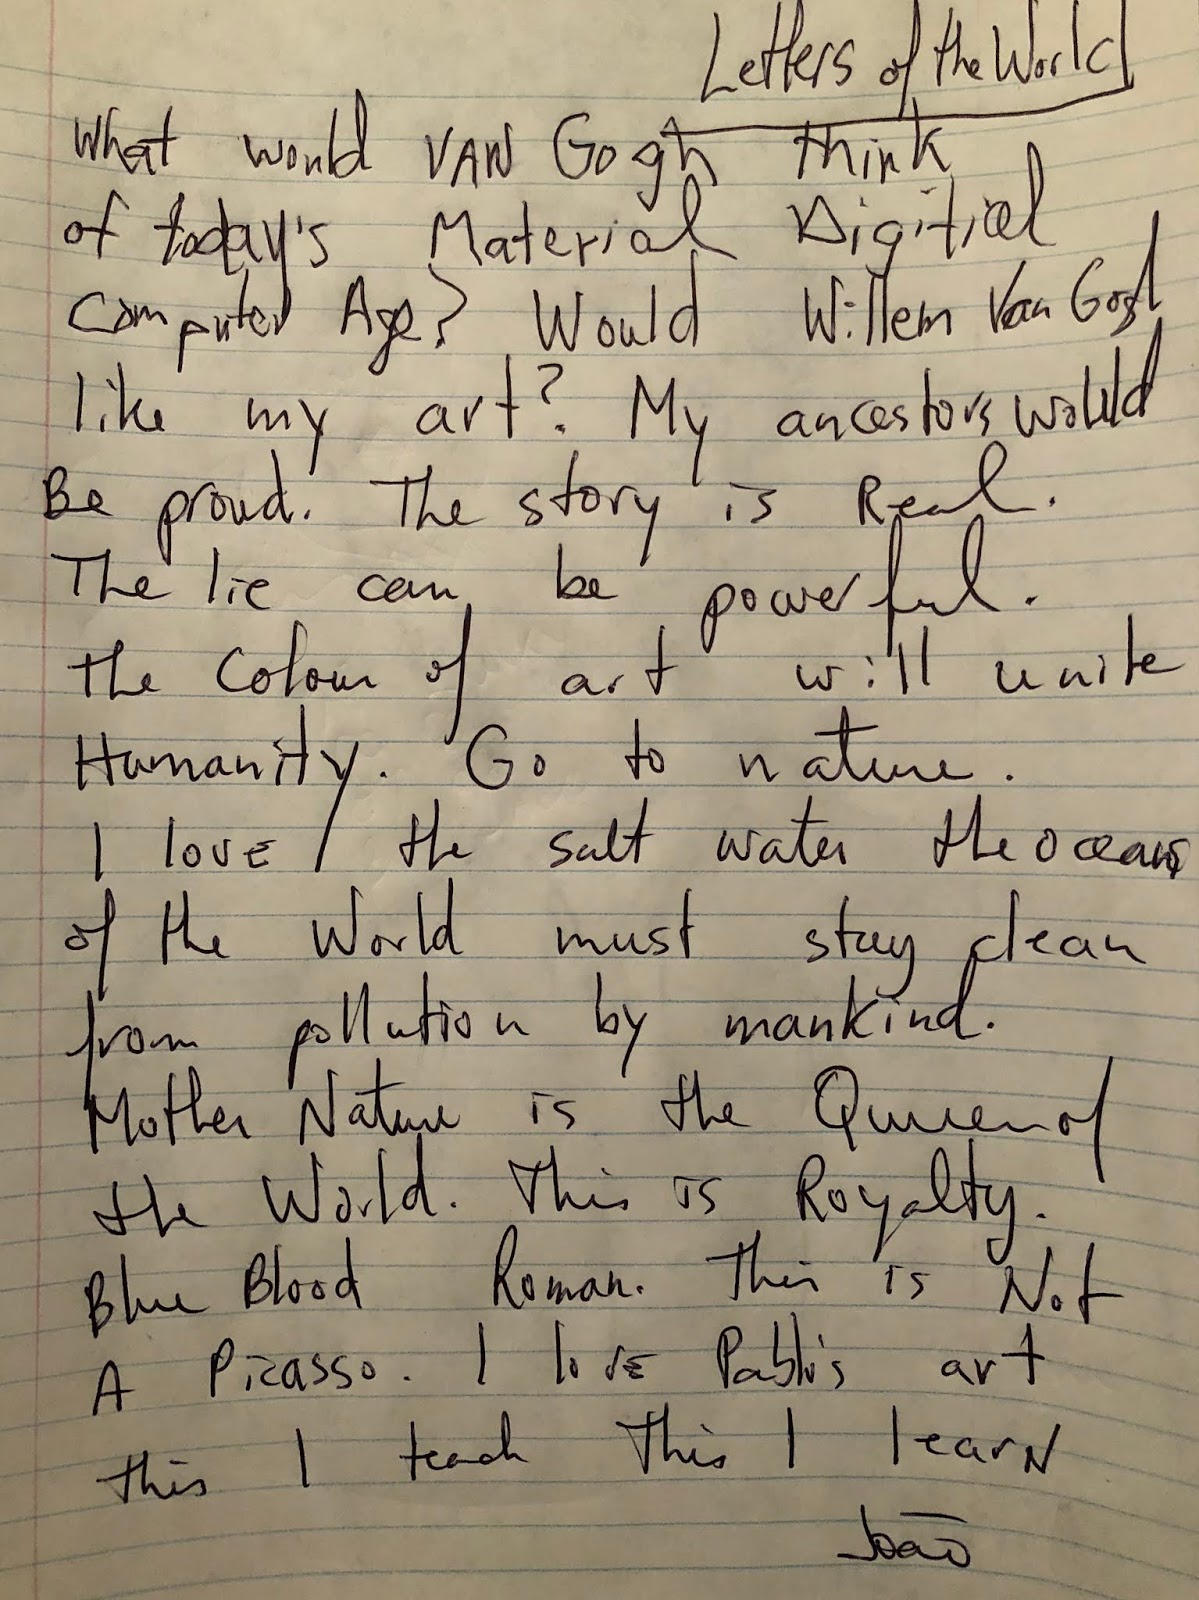 Letters of the World
What would VAN Gogh think
of today's Material Digitial
Computer Age? Would Willem Van Gogh
like my art? My ancestors would
Be proud. The story is Real.
The lie can be powerful.
the Colour of art will unite
Humanity. Go to nature.
I love the salt water the oceans
of the World must stay clean
from pollution by mankind.
Mother Nature is the Queen of
the World. This is Royalty.
Blue Blood Roman. This is Not
A Picasso. I love Pablo's art
this I teach This I learn
João